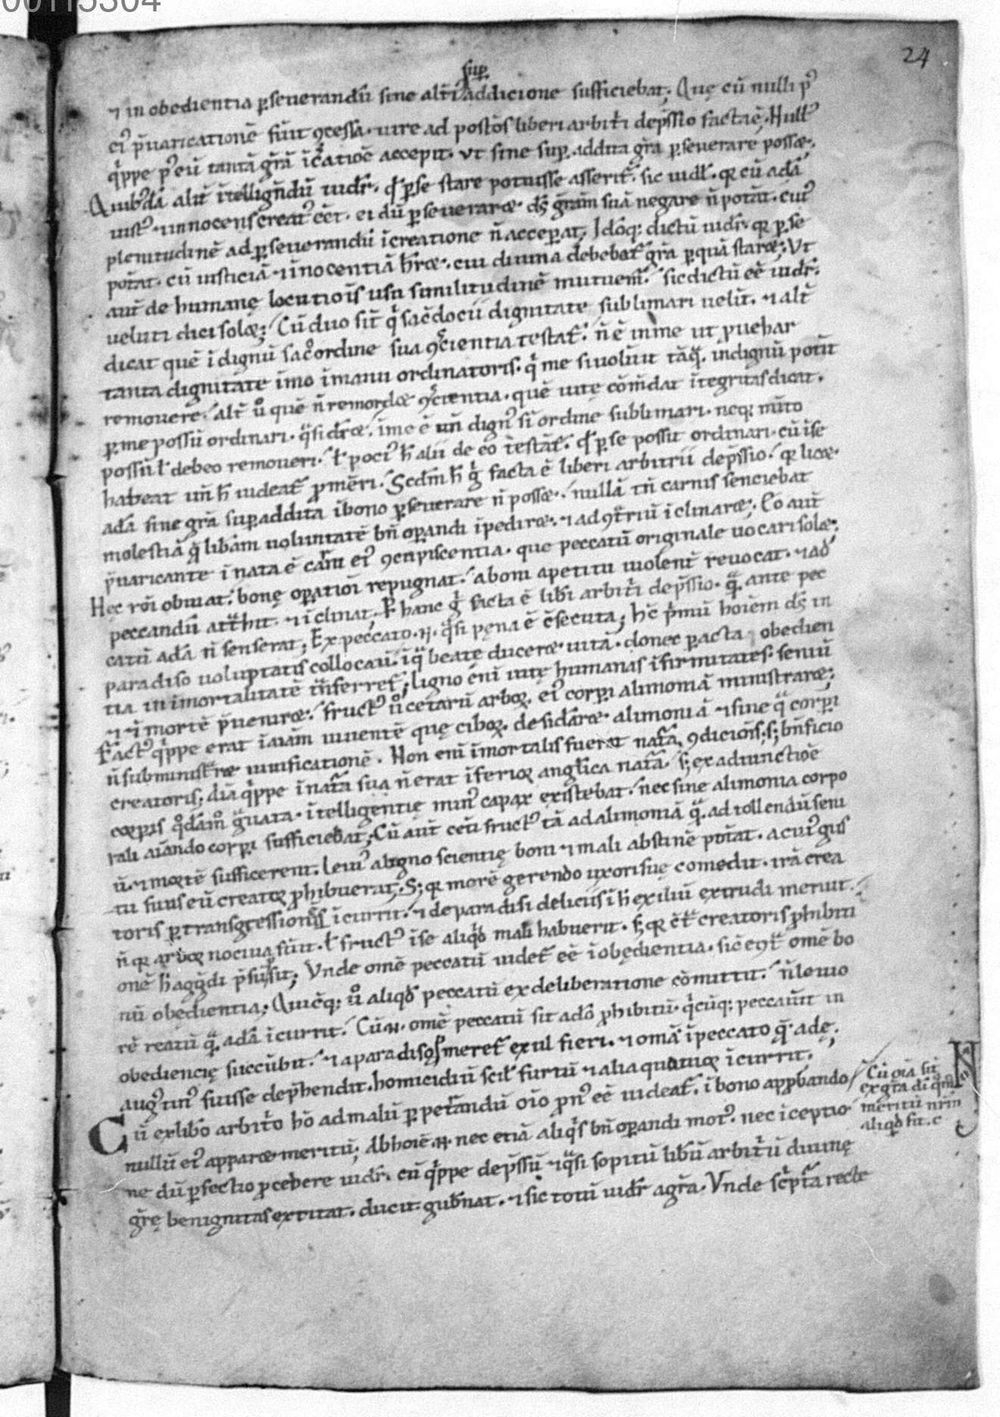 24
sup
⁊ in obedientia p̱severandū sine alt̄i addicione sufficiebat. Quę cū nulli pꝰ
eiꝰ p̄varicationē fuit ɔcessa. iure ad posteros liberi arbit̄i dep̄ssio facta ē. Null
q̄ppe pꝰ eū tantā gr̄am ī creatiōe accepit. ut sine sup̱ addita gr̄a p̱severare posset.
Quibꝰdā alit̄ ītelligēdū uidr̄. q̄ p̱ se stare potuisse asserit. sic uidel. q̇ cū adā
iustꝰ ⁊ innocens creatꝰ eēt. ei dū p̱severaret dꝭ gr̄am suā negare n̄ potat. cuiꝰ
plenitudinē ad p̱severandū ī creatione n̄ acceperat. Idoq; dictū uidr̄. q̇ p̱ se
potat. cū iusticiā ⁊ innocentiā haberet. cui divina debebat gr̄a p̱ quā staret. Ut
aut de humanę locutiōis usu similitudinē mutuem. sic dictū eē uidr̄.
veluti dici solet; Cū duo sint q̄ sacdocii dignitate sublimari velint. ⁊ alt̄
dicat quē īdignū sac̄ ordine sua ɔscientia testat̄. n̄ ē in me ut p̱vehar
tanta dignitate īmo ī manu ordinatoris. q̄ me si voluit tāq̄ indignū potit
removere. alt̄ u̇ quē n̄ remordet ɔscientia. quē vitę cōm̄dat ītegritas dicat.
p̱ me possū ordinari. q̄si diceret. ī me ē un̄ dignꝰ sī ordine sublimari. neq; m̄ito
possū l̄ debeo removeri. l̄ potiꝰ h̄ alii de eo testat̄. q̇ p̱ se possit ordinari. cū ī se
habeat un̄ h̄ uideat̄ p̱m̄eri. Scdm̄ h̄ g̊ facta ē liberi arbitrii dep̄ssio. q̇ licet
adā sine gr̄a sup̱addita ī bono p̱severare n̄ posset. nullā tn̄ carnis senciebat
molestiā q̄ libam voluntatē bn̄ op̱andi īpediret. ⁊ ad ɔtriū īclinaret; Eo aut
p̄varicante īnata ē carni eiꝰ ɔcupiscentia. que peccatū originale vocari solet;
Hec roī obviat. bonę op̱atiōi repugnat. a boni apetitu violent̄ revocat. ⁊ ad
peccandū att̄hit. ⁊ īclinat; P̱ hanc g̊ facta ē lib̄i arbit̄i dep̄ssio. q̄ ante pec
catū adā n̄ senserat; Ex peccato .n. q̄si pęna ē ɔsecuta; Hc̄ p̄mū hoiēm dꝭ in
paradiso voluptatis collocavit. ī q̄ beate duceret vitā. donec p̱acta obedien
tia in īmortalitatē t̄nsferret̄; ligno eni vitę humanas īfirmitates. seniū
⁊ ī mortē p̄veniret. fructꝰ u̇ cetarū arboꝝ. eiꝰ corp̱i alimoniā ministraret;
Factꝰ q̄ppe erat ī aiam viventē quę ciboꝝ. desidaret alimoniā ⁊ sine q̄ corp̱i
n̄ subministret vivificationē. Non eni īmortalis fuerat nat̄a ɔdiciōis; s; bn̄ficio
creatoris; aīa q̄ppe ī nat̄a sua n̄ erat īferioꝝ anglica nat̄a. s; ex adiunctiōe
corp̱is q̄dam gravata. ītelligentię minꝰ capax existebat. nec sine alimonia corpo
rali aīando corp̱i sufficiebat; Cū aut cetī fructꝰ tā ad alimoniā q̄ ad tollendū seni
ū. ⁊ mortē sufficerent. leviꝰ a ligno scientię boni ⁊ mali abstinē potat. a cuiꝰ gus
tu suus eū creator p̱hibuerat; S; q̇ morē gerendo uxori suę comedit. irā crea
toris p̱ transgressionē īcurrit. ⁊ de paradisi deliciis ī h̄ exiliū extrudi meruit.
n̄ q̇ arbor nociva fuit. l̄ fructꝰ ī se aliqd̄ mali habuerit. s; q̇ ɔt̄ creatoris p̱hibiti
onē h̄ aggdi p̄sūpsit; Unde omē peccatū uidet̄ eē ī obędientia. sic ⁊ ɔt̄ omē bo
nū obedientia; Quicq; u̇ aliqd̄ peccatū ex deliberatione cōmittit. n̄ levio
rē reatū q̄ adā īcurrit. Cū .n. omē peccatū sit ado p̱hibitū. q̄cūq; peccavit in
obediencię succūbit. ⁊ a paradiso meret̄ exul fieri. ⁊ omā ī peccato q̄ adę.
augꝰtinꝰ fuisse dep̱hendit. homicidiū scil. furtū ⁊ alia quatuor īcurrit.
Cū ex libo arbit̄o ho ad malū p̱petrandū oīo pnꝰ eē uideat̄. ī bono app̱bando
nullū eiꝰ apparet meritū; Ab hoiē .n. nec etiā aliq̄s bn̄ op̱andi motꝰ. nec īceptio
ne dū p̱fectio p̱cedere uidr̄. cū q̄ppe dep̄ssū ⁊ q̄si sopitū libū arbit̄iū divinę
gr̄ę benignitas extitat. ducit. gub̄nat. ⁊ sic totū uidr̄ a gr̄a. Unde sc̄pt̄a recte
Cū oīa sit
ex gr̄a di q̄m̄
meritū nr̄m
aliqd̄ sit. c